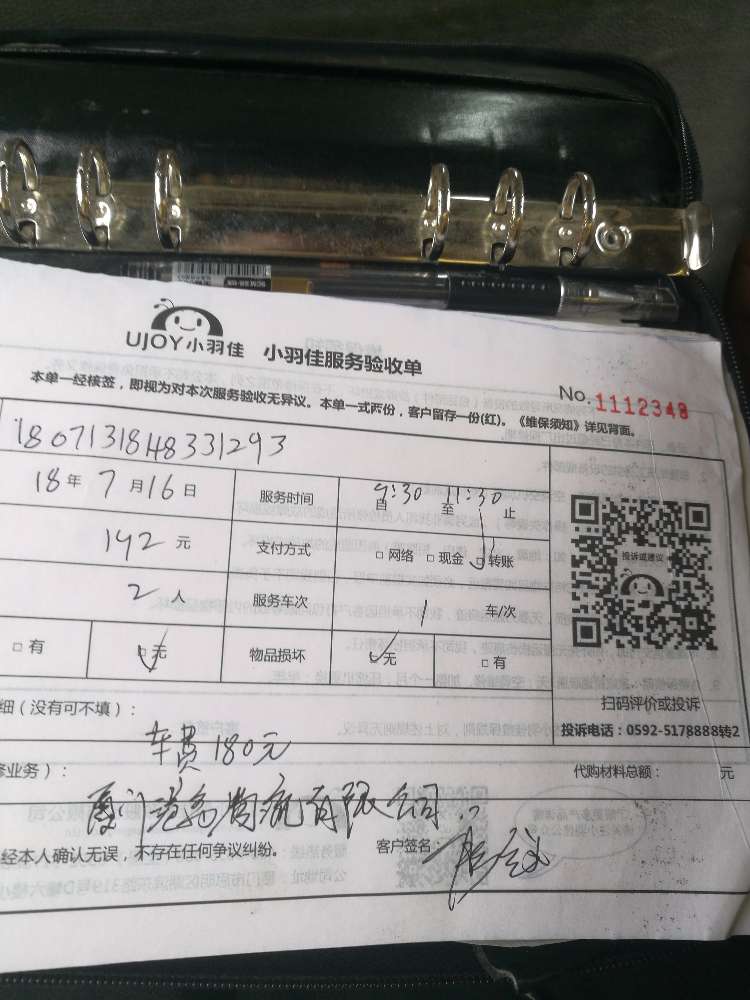 UJOY小羽佳 小羽佳服务验收单
本单一经核签，即视为对本次服务验收无异议。本单一式两份，客户留存一份(红)。《维保须知》详见背面。
No. 1112348
1807131848331293
18年 7月16日 服务时间 自 9:30 至 11:30 止
192 元 支付方式 □网络 □现金 □转账
2 人 服务车次 1 车/次
□有 □无 物品损坏 □无 □有
投诉或建议
扫码评价或投诉
投诉电话：0592-5178888转2
细（没有可不填）：
车费180元
修业务）： 代购材料总额： 元
厦门港务 有限公司
经本人确认无误，不存在任何争议纠纷。 客户签名：